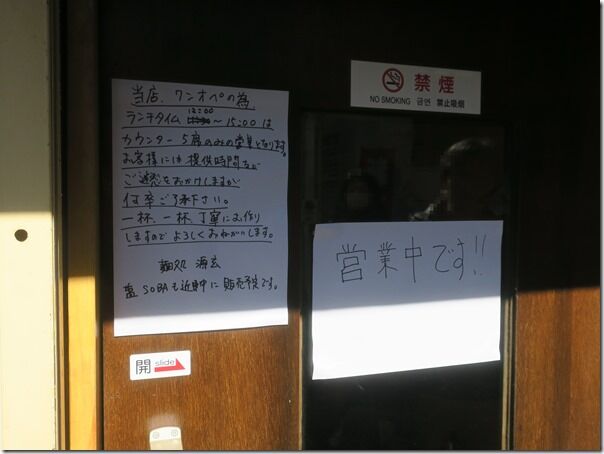 当店、ワンオペの為
ランチタイム 12:00〜15:00は
カウンター 5席のみの営業となります。
お客様には提供時間など
ご迷惑をおかけしますが
何卒ご了承下さい。
一杯、一杯、丁寧にお作り
しますのでよろしくおねがいします。
麺処 源玄
塩SOBAも近日中に販売予定です。
開 slide
禁煙
NO SMOKING 금연 禁止吸烟
営業中です!!